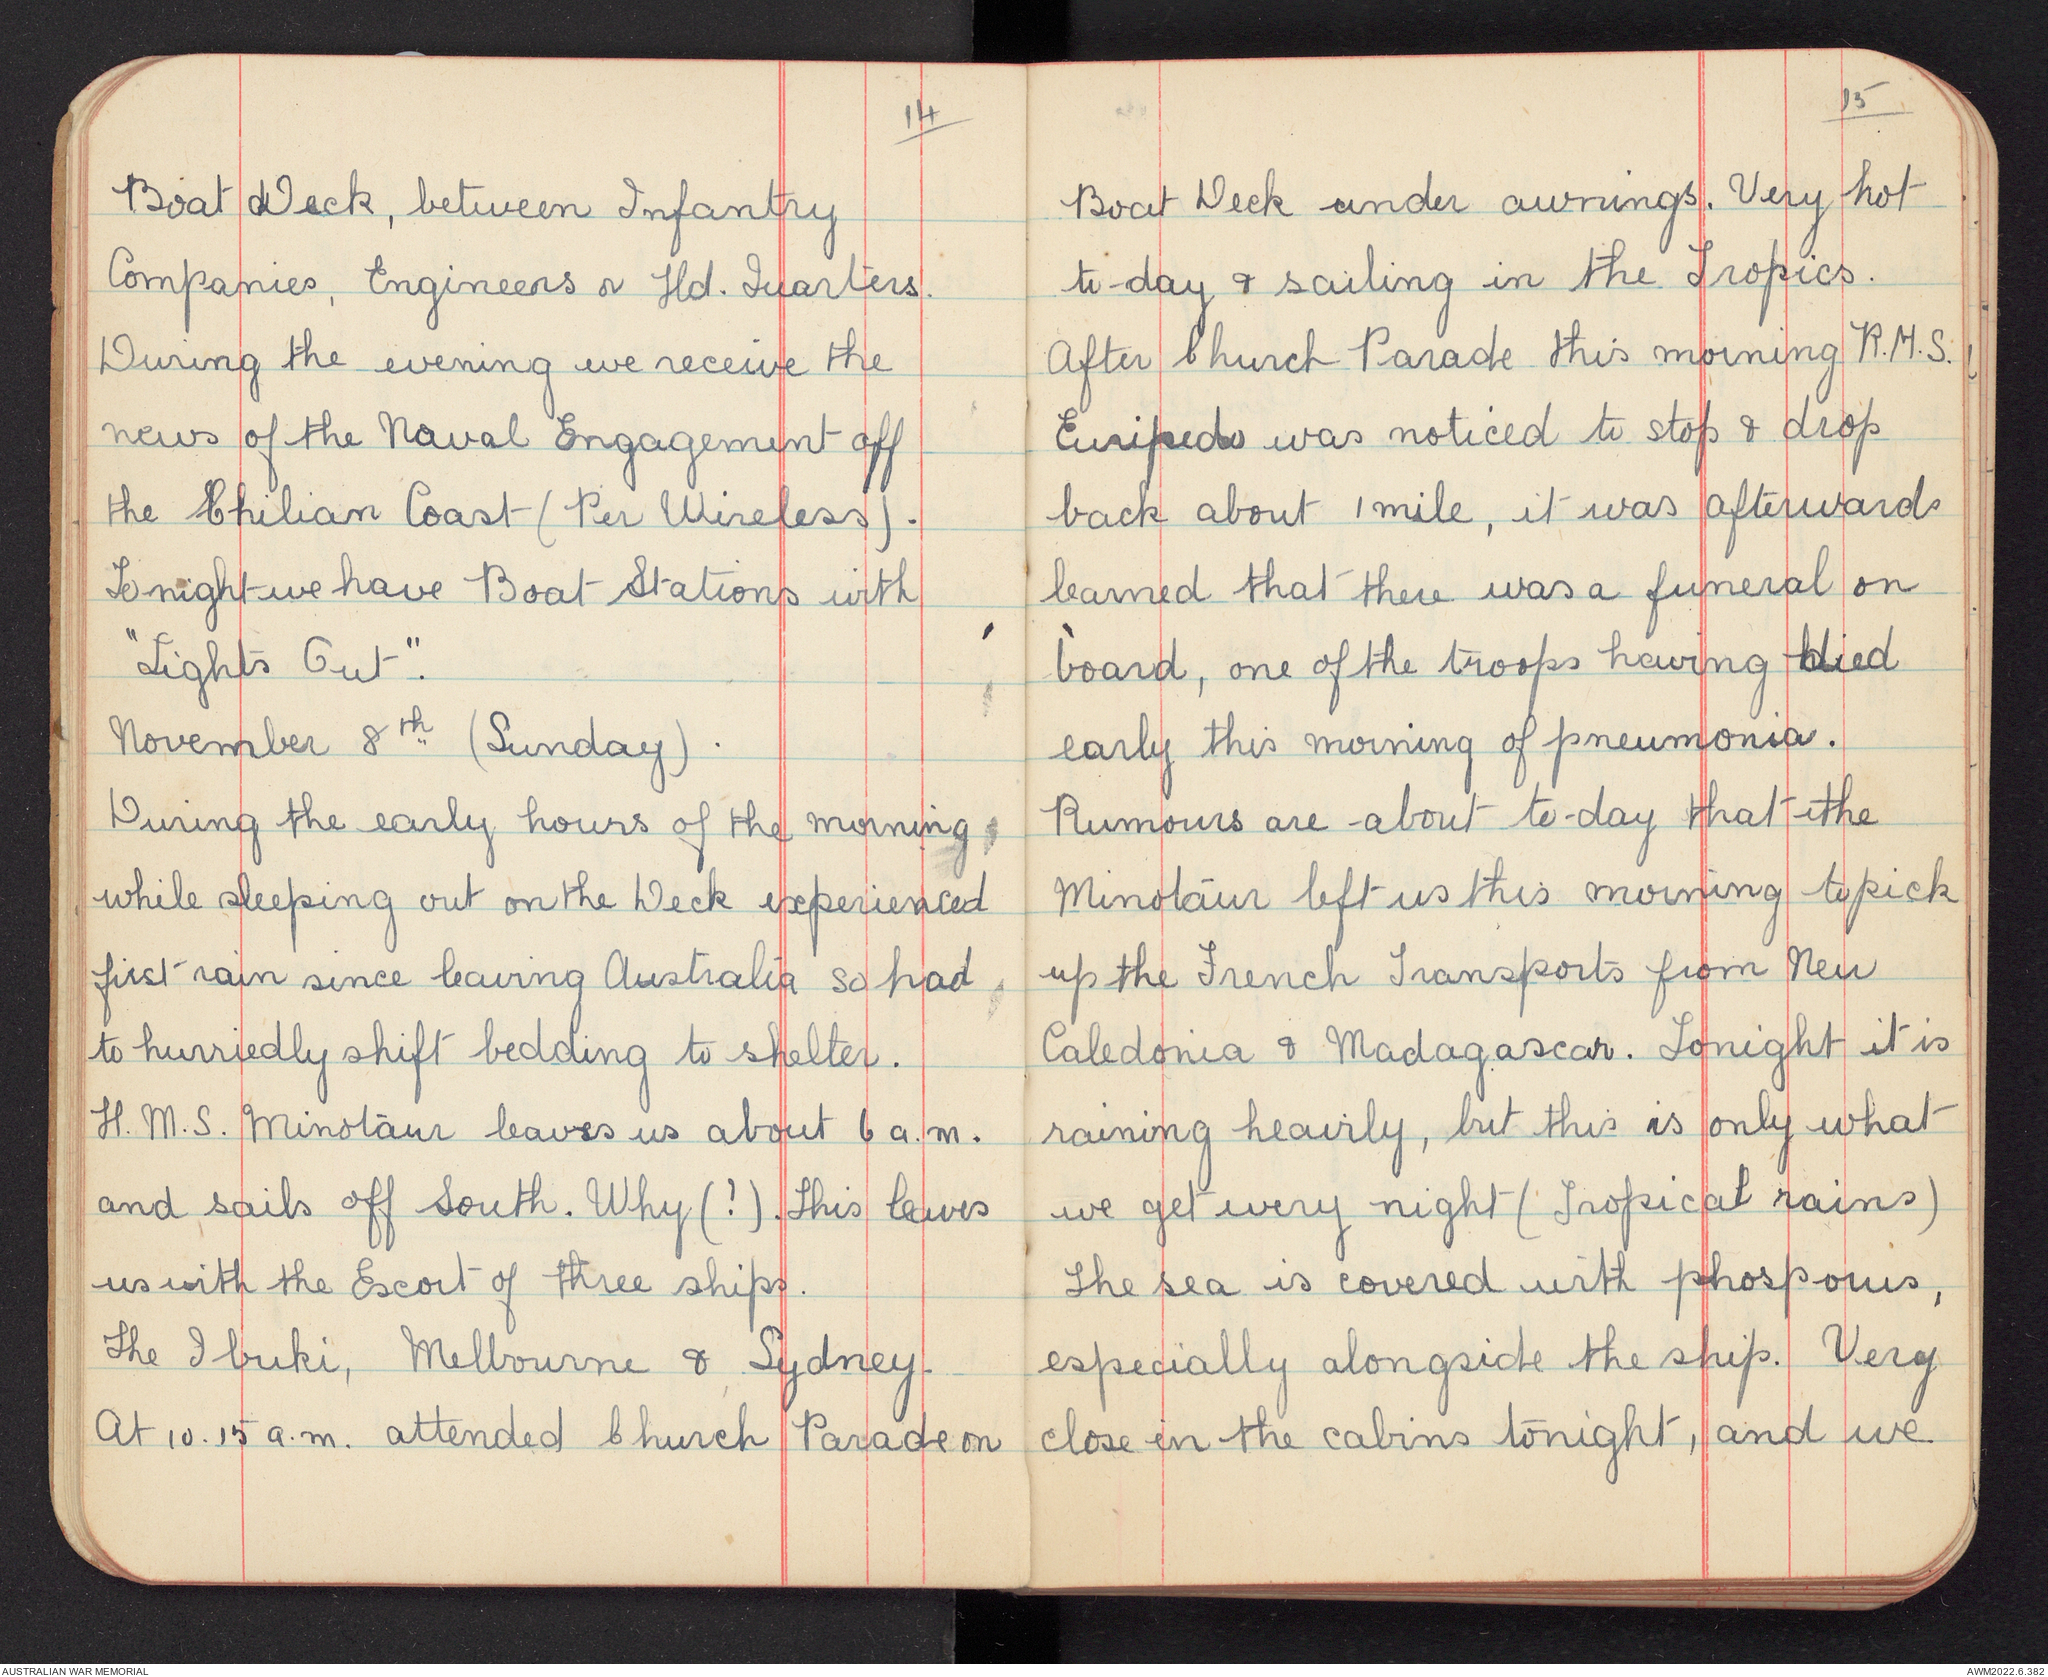 14
Boat Deck, between Infantry
Companies, Engineers & Hd. Quarters.
During the evening we receive the
news of the Naval Engagement off
the Chilian Coast (Per Wireless).
Tonight we have Boat Stations with
"Lights Out".
November 8th (Sunday).
During the early hours of the morning,
while sleeping out on the Deck experienced
first rain since leaving Australia so had
to hurriedly shift bedding to shelter.
H.M.S. Minotaur leaves us about 6 a.m.
and sails off South. Why (?). This leaves
us with the Escort of three ships.
The Ibuki, Melbourne & Sydney.
At 10.15 a.m. attended Church Parade on
15
Boat Deck under awnings. Very hot
to-day & sailing in the Tropics.
After Church Parade this morning R.M.S.
Euripedes was noticed to stop & drop
back about 1 mile, it was afterwards
learned that there was a funeral on
board, one of the troops having died
early this morning of pneumonia.
Rumours are about to-day that the
Minotaur left us this morning to pick
up the French Transports from New
Caledonia & Madagascar. Tonight it is
raining heavily, but this is only what
we get every night (Tropical rains)
The sea is covered with phosporus,
especially alongside the ship. Very
close in the cabins tonight, and we
AUSTRALIAN WAR MEMORIAL
AWM2022.6.382